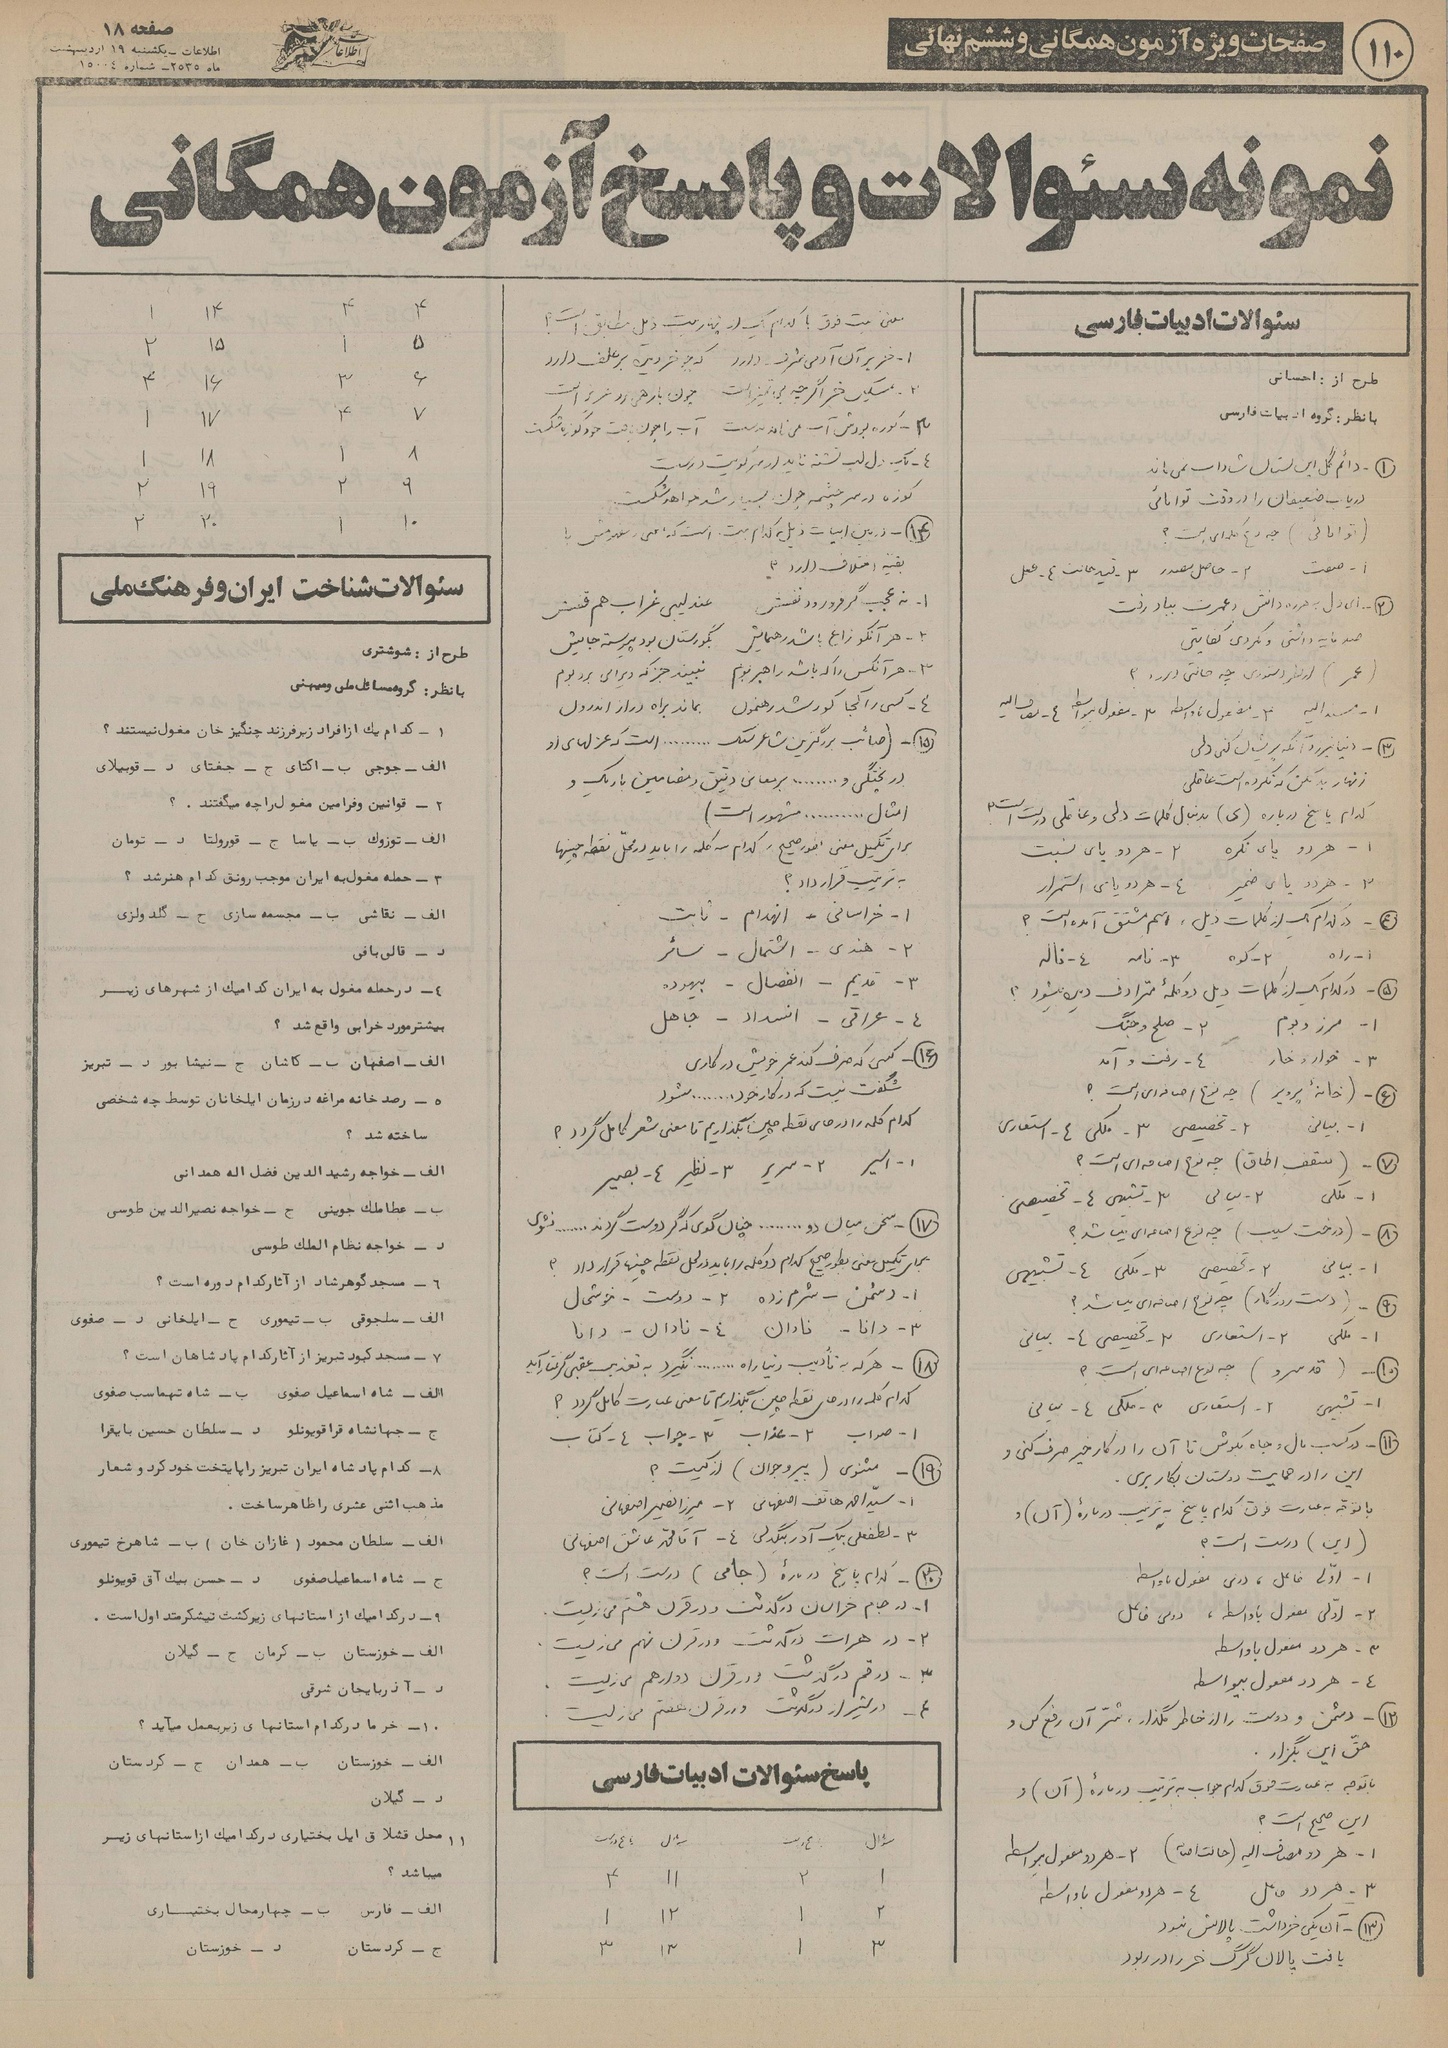 ۱۱۰
صفحات ویژه آزمون همگانی و ششم نهائی
اطلاعات
صفحه ۱۸
اطلاعات ـ یکشنبه ۱۹ اردیبهشت
ماه ۲۵۳۵ ـ شماره ۱۵۰۰۴
نمونه سئوالات و پاسخ آزمون همگانی
سئوالات ادبیات فارسی
طرح از : احسانی
بانظر : گروه ادبیات فارسی
۱ - دائم گل این بستان شاداب نمی ماند
دریاب ضعیفان را در وقت توانائی
(توانائی) چه نوع کلمه‌ای است ؟
۱- صفت ۲- حاصل مصدر ۳- قید حالت ۴- فعل
۲ - ای دل بهرزه دانش و عمرت بباد رفت
صد مایه داشتی و نکردی کفایتی
(عمر) از نظر دستوری چه حالتی دارد ؟
۱- مسندالیه ۲- مفعول باواسطه ۳- مفعول بیواسطه ۴- مضاف الیه
۳ - دنیا نیرزد آنکه پریشان کنی دلی
زنهار بد مکن که نکرده است عاقلی
کدام پاسخ درباره (ی) بدنبال کلمات دلی و عاقلی درست است ؟
۱ - هر دو یای نکره ۲ - هر دو یای نسبت
۳ - هر دو یای ضمیر ۴ - هر دو یای استمرار
۴ - در کدام یک از کلمات ذیل ، اسم مشتق آمده است ؟
۱- راه ۲- کوه ۳- نامه ۴- ناله
۵ - در کدام یک از کلمات ذیل دو کلمهٔ مترادف دیده میشود ؟
۱- مرز و بوم ۲- صلح و جنگ
۳- خوار و خار ۴- رفت و آمد
۶ - (خانهٔ پرویز) چه نوع اضافه‌ای است ؟
۱- بیانی ۲- تخصیصی ۳- ملکی ۴- استعاری
۷ - (سقف اطاق) چه نوع اضافه‌ای است ؟
۱- ملکی ۲- بیانی ۳- تشبیهی ۴- تخصیصی
۸ - (درخت سیب) چه نوع اضافه‌ای میباشد ؟
۱- بیانی ۲- تخصیصی ۳- ملکی ۴- تشبیهی
۹ - (دست روزگار) چه نوع اضافه‌ای میباشد ؟
۱- ملکی ۲- استعاری ۳- تخصیصی ۴- بیانی
۱۰ - (قد سرو) چه نوع اضافه‌ای است ؟
۱- تشبیهی ۲- استعاری ۳- ملکی ۴- بیانی
۱۱ - در کسب مال و جاه بکوش تا آن را در کار خیر صرف کنی و
این را در حمایت دوستان بکار بری .
باتوجه به عبارت فوق کدام پاسخ به ترتیب دربارهٔ (آن) و
(این) درست است ؟
۱- اولی فاعل ، دومی مفعول باواسطه
۲- اولی مفعول باواسطه ، دومی فاعل
۳- هر دو مفعول باواسطه
۴- هر دو مفعول بیواسطه
۱۲ - دشمن و دوست را از خاطر مگذار ، شر آن رفع کن و
حق این بگزار .
باتوجه به عبارت فوق کدام جواب به ترتیب دربارهٔ (آن) و
این صحیح است ؟
۱- هر دو مضاف الیه (حالت اضافه) ۲- هر دو مفعول بیواسطه
۳- هر دو فاعل ۴- هر دو مفعول باواسطه
۱۳ - آن یکی خر داشت پالانش نبود
یافت پالان گرگ خر را در ربود
معنی بیت فوق با کدام یک از چهار بیت ذیل مطابق است ؟
۱- خر بر آن آدمی شرف دارد که چو خر دیده بر علف دارد
۲- مسکین خر اگرچه بی تمیز است چون بار همی برد عزیز است
۳- کوزه بودش آب می نامد بدست آب را چون یافت خود کوزه شکست
کوزه در سر چشمه چون بسیار شد خواهد شکست
۱۴ - در بین ابیات ذیل کدام بیت است که معنی و مقصودش با
بقیه اختلاف دارد ؟
۱- نه عجب گر فرو رود نفسش عندلیبی غراب هم قفسش
۲- هر آنکو زاغ باشد رهنمایش بگورستان بود پیوسته جایش
۳- هر آنکس را که باشد راهبر بوم نبیند جز که ویرانی بر و بوم
۴- کسی را کجا کور شد رهنمون بماند براه دراز اندرون
۱۵ - (صائب بزرگترین شاعر سبک ......... است که غزلهای او
در پختگی و ........ بر معانی دقیق و مضامین باریک و
امثال .......... مشهور است)
برای تکمیل معنی بطور صحیح ، کدام سه کلمه را باید در محل نقطه چینها
به ترتیب قرار داد ؟
۱- خراسانی - انهدام - ثابت
۲- هندی - اشتمال - سائر
۳- قدیم - انفصال - بیهوده
۴- عراقی - انسداد - جاهل
۱۶ - کسی که صرف کند عمر خویش در کاری
شگفت نیست که در کار خود ....... شود
کدام کلمه را در جای نقطه چین بگذاریم تا معنی شعر کامل گردد ؟
۱- اسیر ۲- سریر ۳- نظیر ۴- بصیر
۱۷ - سخن میان دو ........ چنان گوی که گر دوست گردند ....... نشوی
برای تکمیل معنی بطور صحیح کدام دو کلمه را باید در محل نقطه چینها قرار داد ؟
۱- دشمن - شرم زده ۲- دوست - خوشحال
۳- دانا - نادان ۴- نادان - دانا
۱۸ - هر که به تأدیب دنیا راه ........ نگیرد به تعذیب عقبی گرفتار آید
کدام کلمه را در جای نقطه چین بگذاریم تا معنی عبارت کامل گردد ؟
۱- صواب ۲- عذاب ۳- جواب ۴- کتاب
۱۹ - مثنوی (پیر و جوان) از کیست ؟
۱- سید احمد هاتف اصفهانی ۲- میرزا نصیر اصفهانی
۳- لطفعلی بیک آذر بیگدلی ۴- آقا محمد عاشق اصفهانی
۲۰ - کدام پاسخ دربارهٔ (جامی) درست است ؟
۱- در جام خراسان درگذشت و در قرن هشتم می زیست .
۲- در هرات درگذشت و در قرن نهم می زیست .
۳- در قم درگذشت و در قرن دوازدهم می زیست .
۴- در شیراز درگذشت و در قرن هفتم می زیست .
پاسخ سئوالات ادبیات فارسی
سئوال پاسخ درست سئوال پاسخ درست
۱ ۲ ۱۱ ۴
۲ ۱ ۱۲ ۱
۳ ۱ ۱۳ ۳
۴ ۴ ۱۴ ۱
۵ ۱ ۱۵ ۲
۶ ۳ ۱۶ ۴
۷ ۴ ۱۷ ۱
۸ ۱ ۱۸ ۱
۹ ۲ ۱۹ ۲
۱۰ ۱ ۲۰ ۲
سئوالات شناخت ایران و فرهنگ ملی
طرح از : شوشتری
بانظر : گروه مسائل ملی و میهنی
۱ ـ کدام یک از افراد زیر فرزند چنگیز خان مغول نیستند ؟
الف ـ جوجی ب ـ اکتای ج ـ جغتای د ـ قوبیلای
۲ ـ قوانین و فرامین مغول را چه میگفتند . ؟
الف ـ توزوک ب ـ یاسا ج ـ قورولتا د ـ تومان
۳ ـ حمله مغول به ایران موجب رونق کدام هنر شد ؟
الف ـ نقاشی ب ـ مجسمه سازی ج ـ گلدوزی
د ـ قالی بافی
۴ ـ در حمله مغول به ایران کدامیک از شهرهای زیر
بیشتر مورد خرابی واقع شد ؟
الف ـ اصفهان ب ـ کاشان ج ـ نیشابور د ـ تبریز
۵ ـ رصد خانه مراغه در زمان ایلخانان توسط چه شخصی
ساخته شد ؟
الف ـ خواجه رشید الدین فضل اله همدانی
ب ـ عطاملک جوینی ج ـ خواجه نصیرالدین طوسی
د ـ خواجه نظام الملک طوسی
۶ ـ مسجد گوهرشاد از آثار کدام دوره است ؟
الف ـ سلجوقی ب ـ تیموری ج ـ ایلخانی د ـ صفوی
۷ ـ مسجد کبود تبریز از آثار کدام پادشاهان است ؟
الف ـ شاه اسماعیل صفوی ب ـ شاه تهماسب صفوی
ج ـ جهانشاه قراقویونلو د ـ سلطان حسین بایقرا
۸ ـ کدام پادشاه ایران تبریز را پایتخت خود کرد و شعار
مذهب اثنی عشری را ظاهر ساخت .
الف ـ سلطان محمود (غازان خان) ب ـ شاهرخ تیموری
ج ـ شاه اسماعیل صفوی د ـ حسن بیک آق قویونلو
۹ ـ در کدامیک از استانهای زیر کشت نیشکر متداول است .
الف ـ خوزستان ب ـ کرمان ج ـ گیلان
د ـ آذربایجان شرقی
۱۰ ـ خرما در کدام استانهای زیر بعمل میآید ؟
الف ـ خوزستان ب ـ همدان ج ـ کردستان
د ـ گیلان
۱۱ محل قشلاق ایل بختیاری در کدامیک از استانهای زیر
میباشد ؟
الف ـ فارس ب ـ چهارمحال بختیاری
ج ـ کردستان د ـ خوزستان